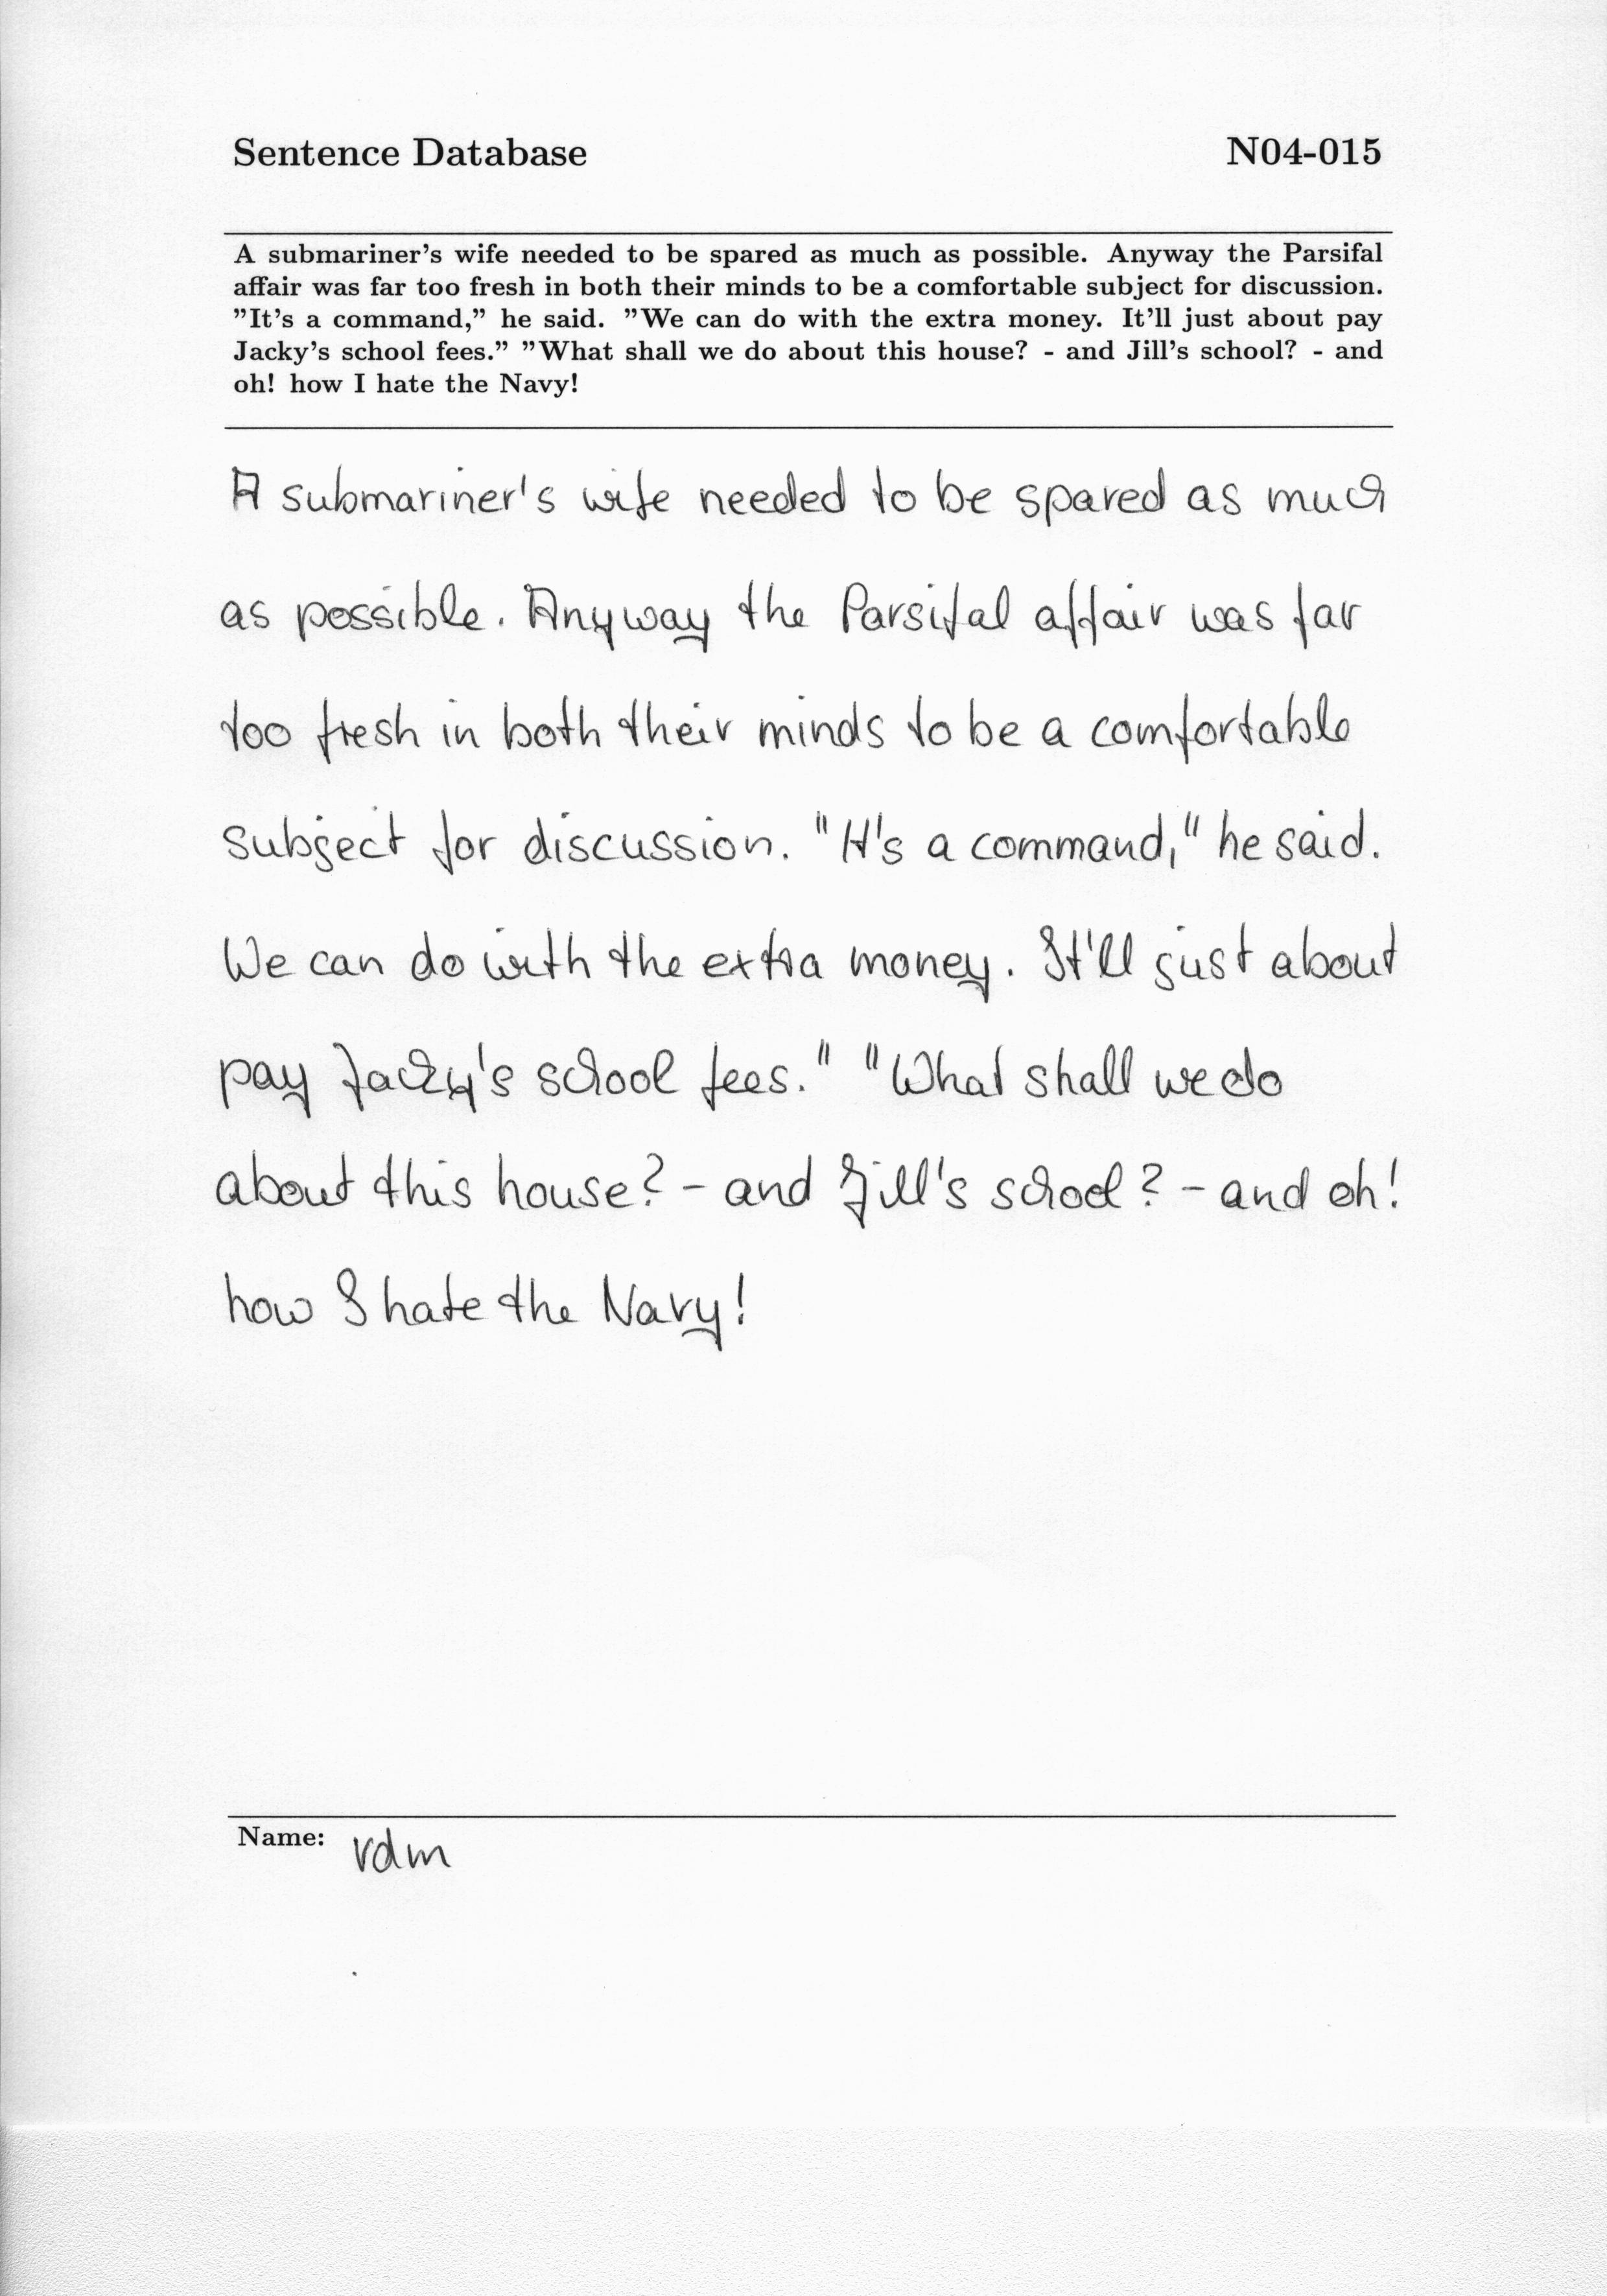 Sentence Database N04-015
A submariner's wife needed to be spared as much as possible. Anyway the Parsifal
affair was far too fresh in both their minds to be a comfortable subject for discussion.
"It's a command," he said. "We can do with the extra money. It'll just about pay
Jacky's school fees." "What shall we do about this house? - and Jill's school? - and
oh! how I hate the Navy!
A submariner's wife needed to be spared as much
as possible. Anyway the Parsifal affair was far
too fresh in both their minds to be a comfortable
subject for discussion. "It's a command," he said.
We can do with the extra money. It'll just about
pay Jacky's school fees." "What shall we do
about this house? - and Jill's school? - and oh!
how I hate the Navy!
Name: rdm